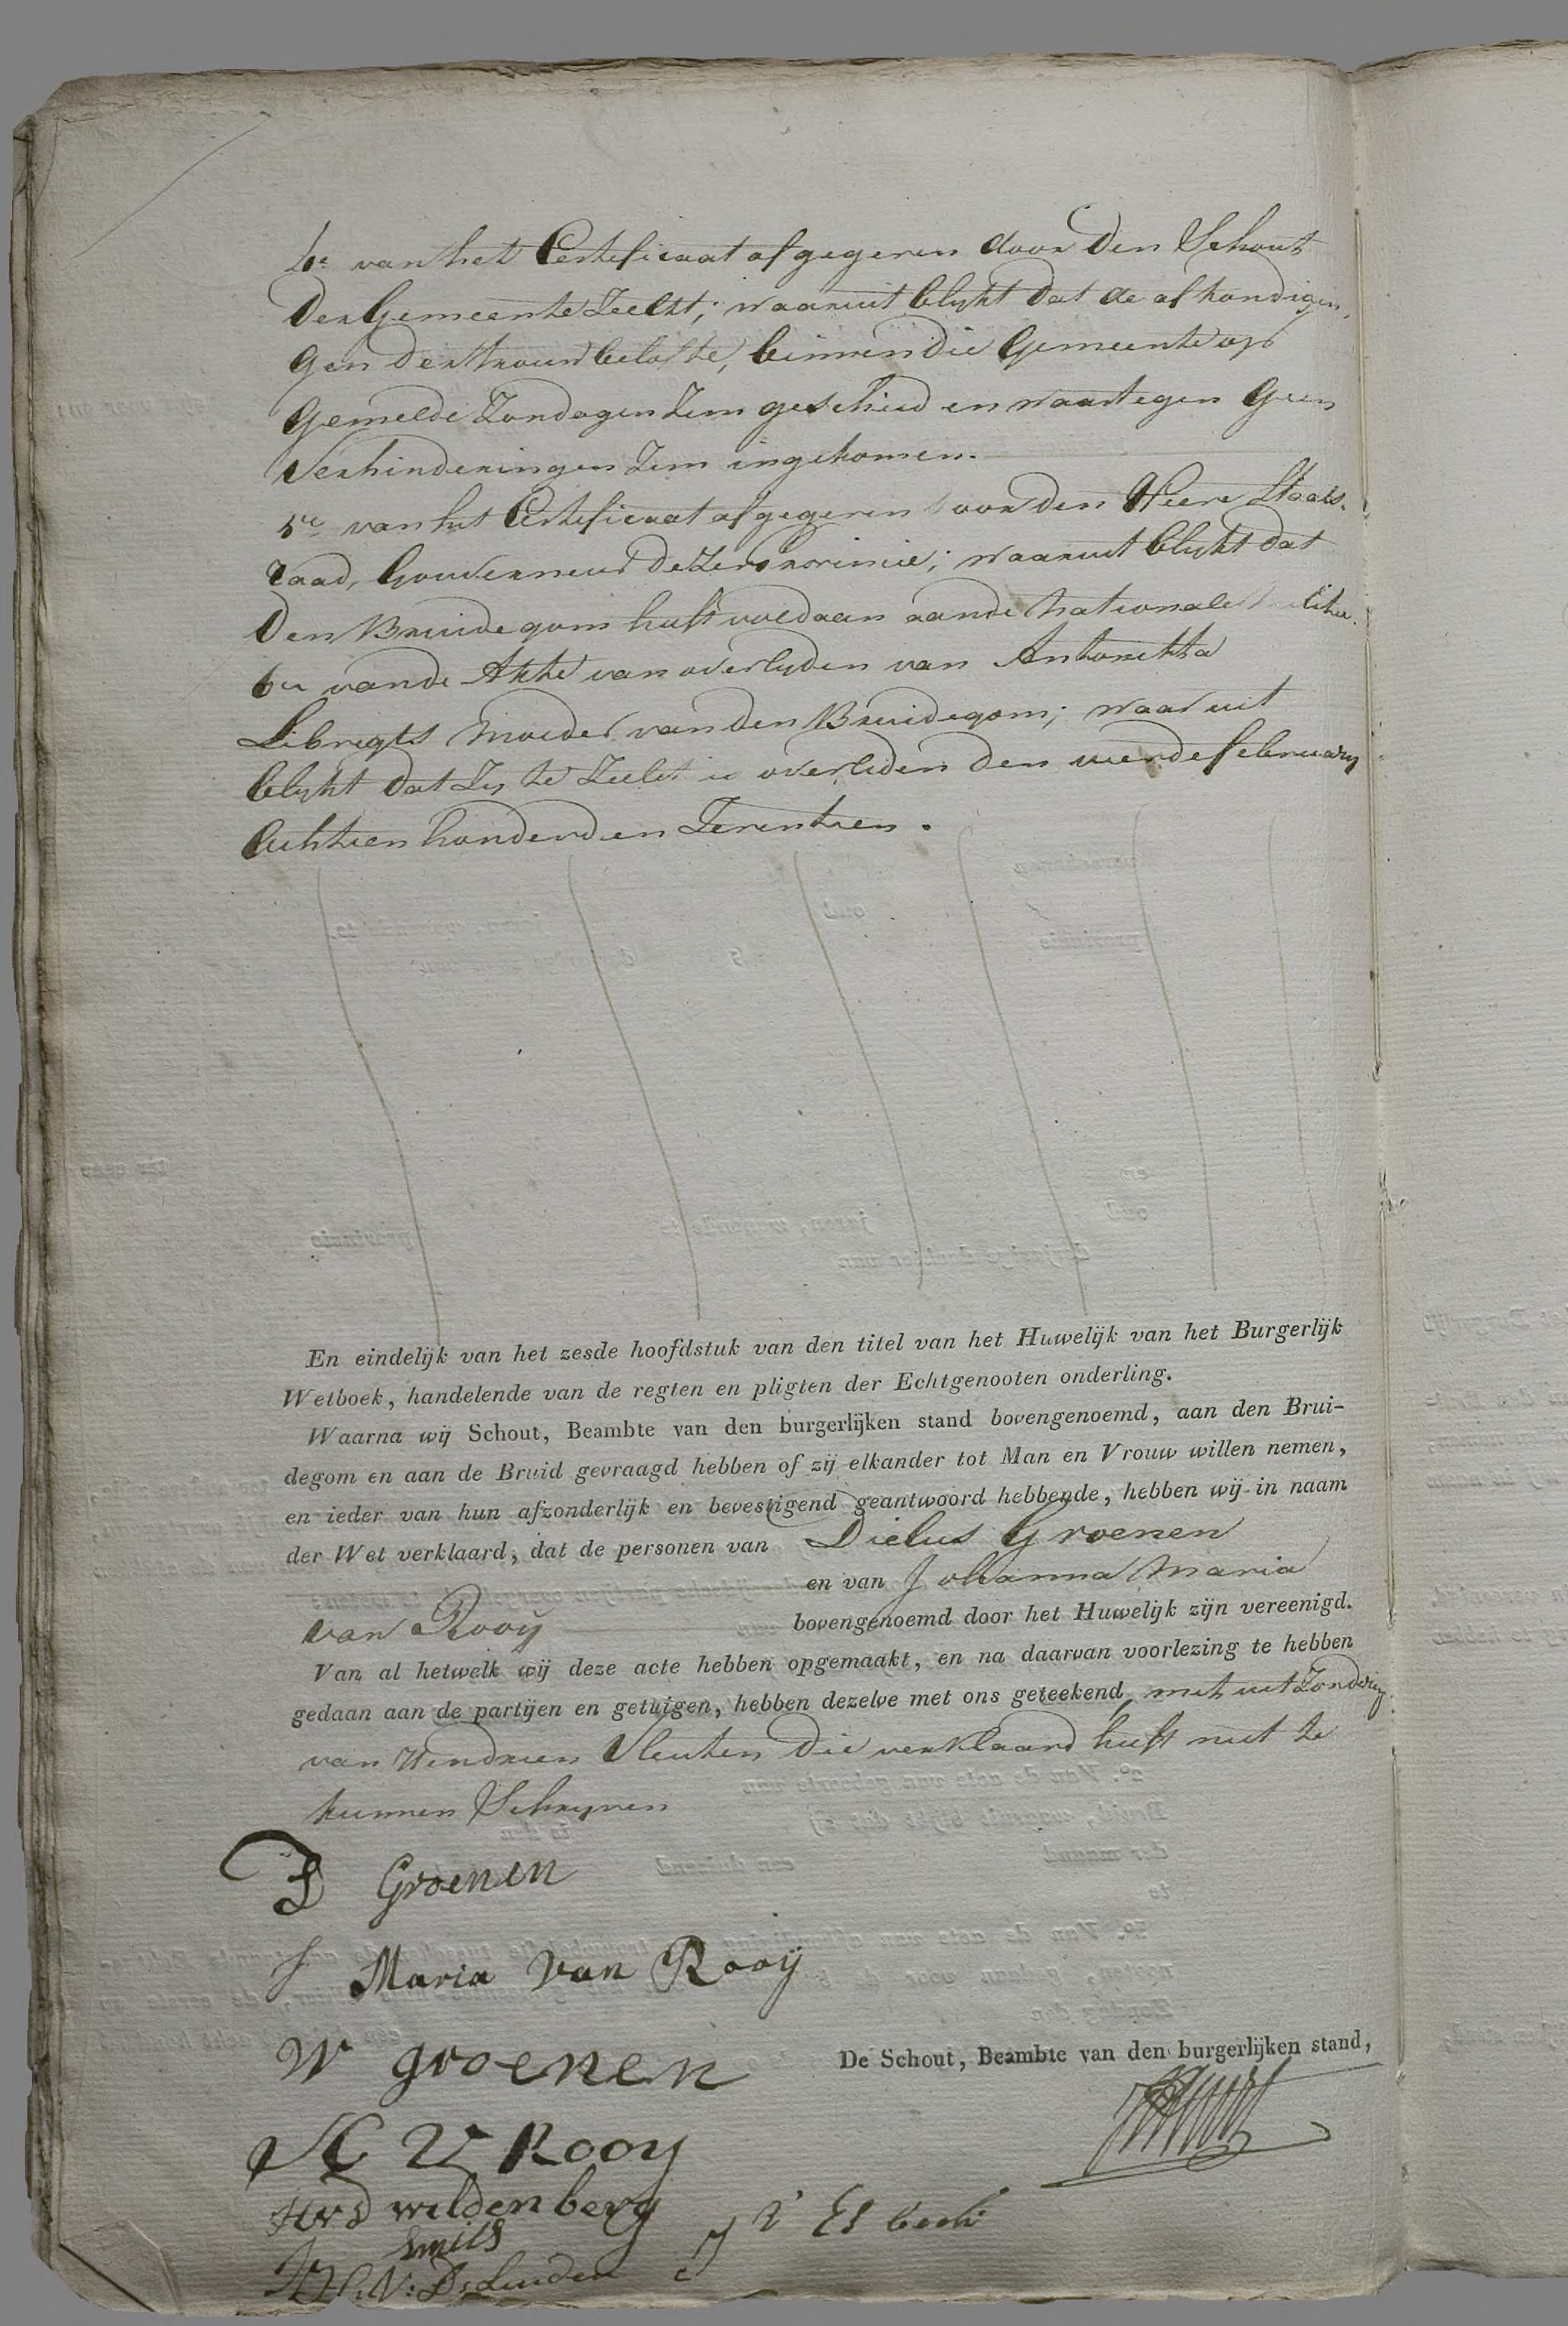 4e van het Certificaat afgegeven door den Schout
der Gemeente Zeelst; waaruit blykt dat de afkondigin-
gen der trouwbelofte, binnen die Gemeente op
gemelde Zondagen zyn geschied en waartegen geen
Verhinderingen zyn ingekomen.
5e van het Certificaat afgegeven door den Heere Staats-
raad, Gouverneur dezer provincie; waaruit blykt dat
den Bruidegom heeft voldaan aan de Nationale Militie.
6e van de Akte van overlyden van Antonetta
Libregts Moeder van den Bruidegom; waar uit
blykt dat Zy te Zeelst is overleden den vierde february
Achtien honderd en Zeventien.
En eindelijk van het zesde hoofdstuk van den titel van het Huwelijk van het Burgerlijk
Wetboek, handelende van de regten en pligten der Echtgenooten onderling.
Waarna wij Schout, Beambte van den burgerlijken stand bovengenoemd, aan den Brui-
degom en aan de Bruid gevraagd hebben of zij elkander tot Man en Vrouw willen nemen,
en ieder van hun afzonderlijk en bevestigend geantwoord hebbende, hebben wij in naam
der Wet verklaard, dat de personen van Dielus Groenen
en van Johanna Maria
van Rooy bovengenoemd door het Huwelijk zijn vereenigd.
Van al hetwelk wij deze acte hebben opgemaakt, en na daarvan voorlezing te hebben
gedaan aan de partijen en getuigen, hebben dezelve met ons geteekend, met uitzondring
van Hendrien Sleuten die verklaard heeft niet te
kunnen Schryven
D Groenen
J Maria van Rooÿ
W groenen
De Schout, Beambte van den burgerlijken stand,
V Rooy
Hvd wildenberg
Smits
V: D: Linden